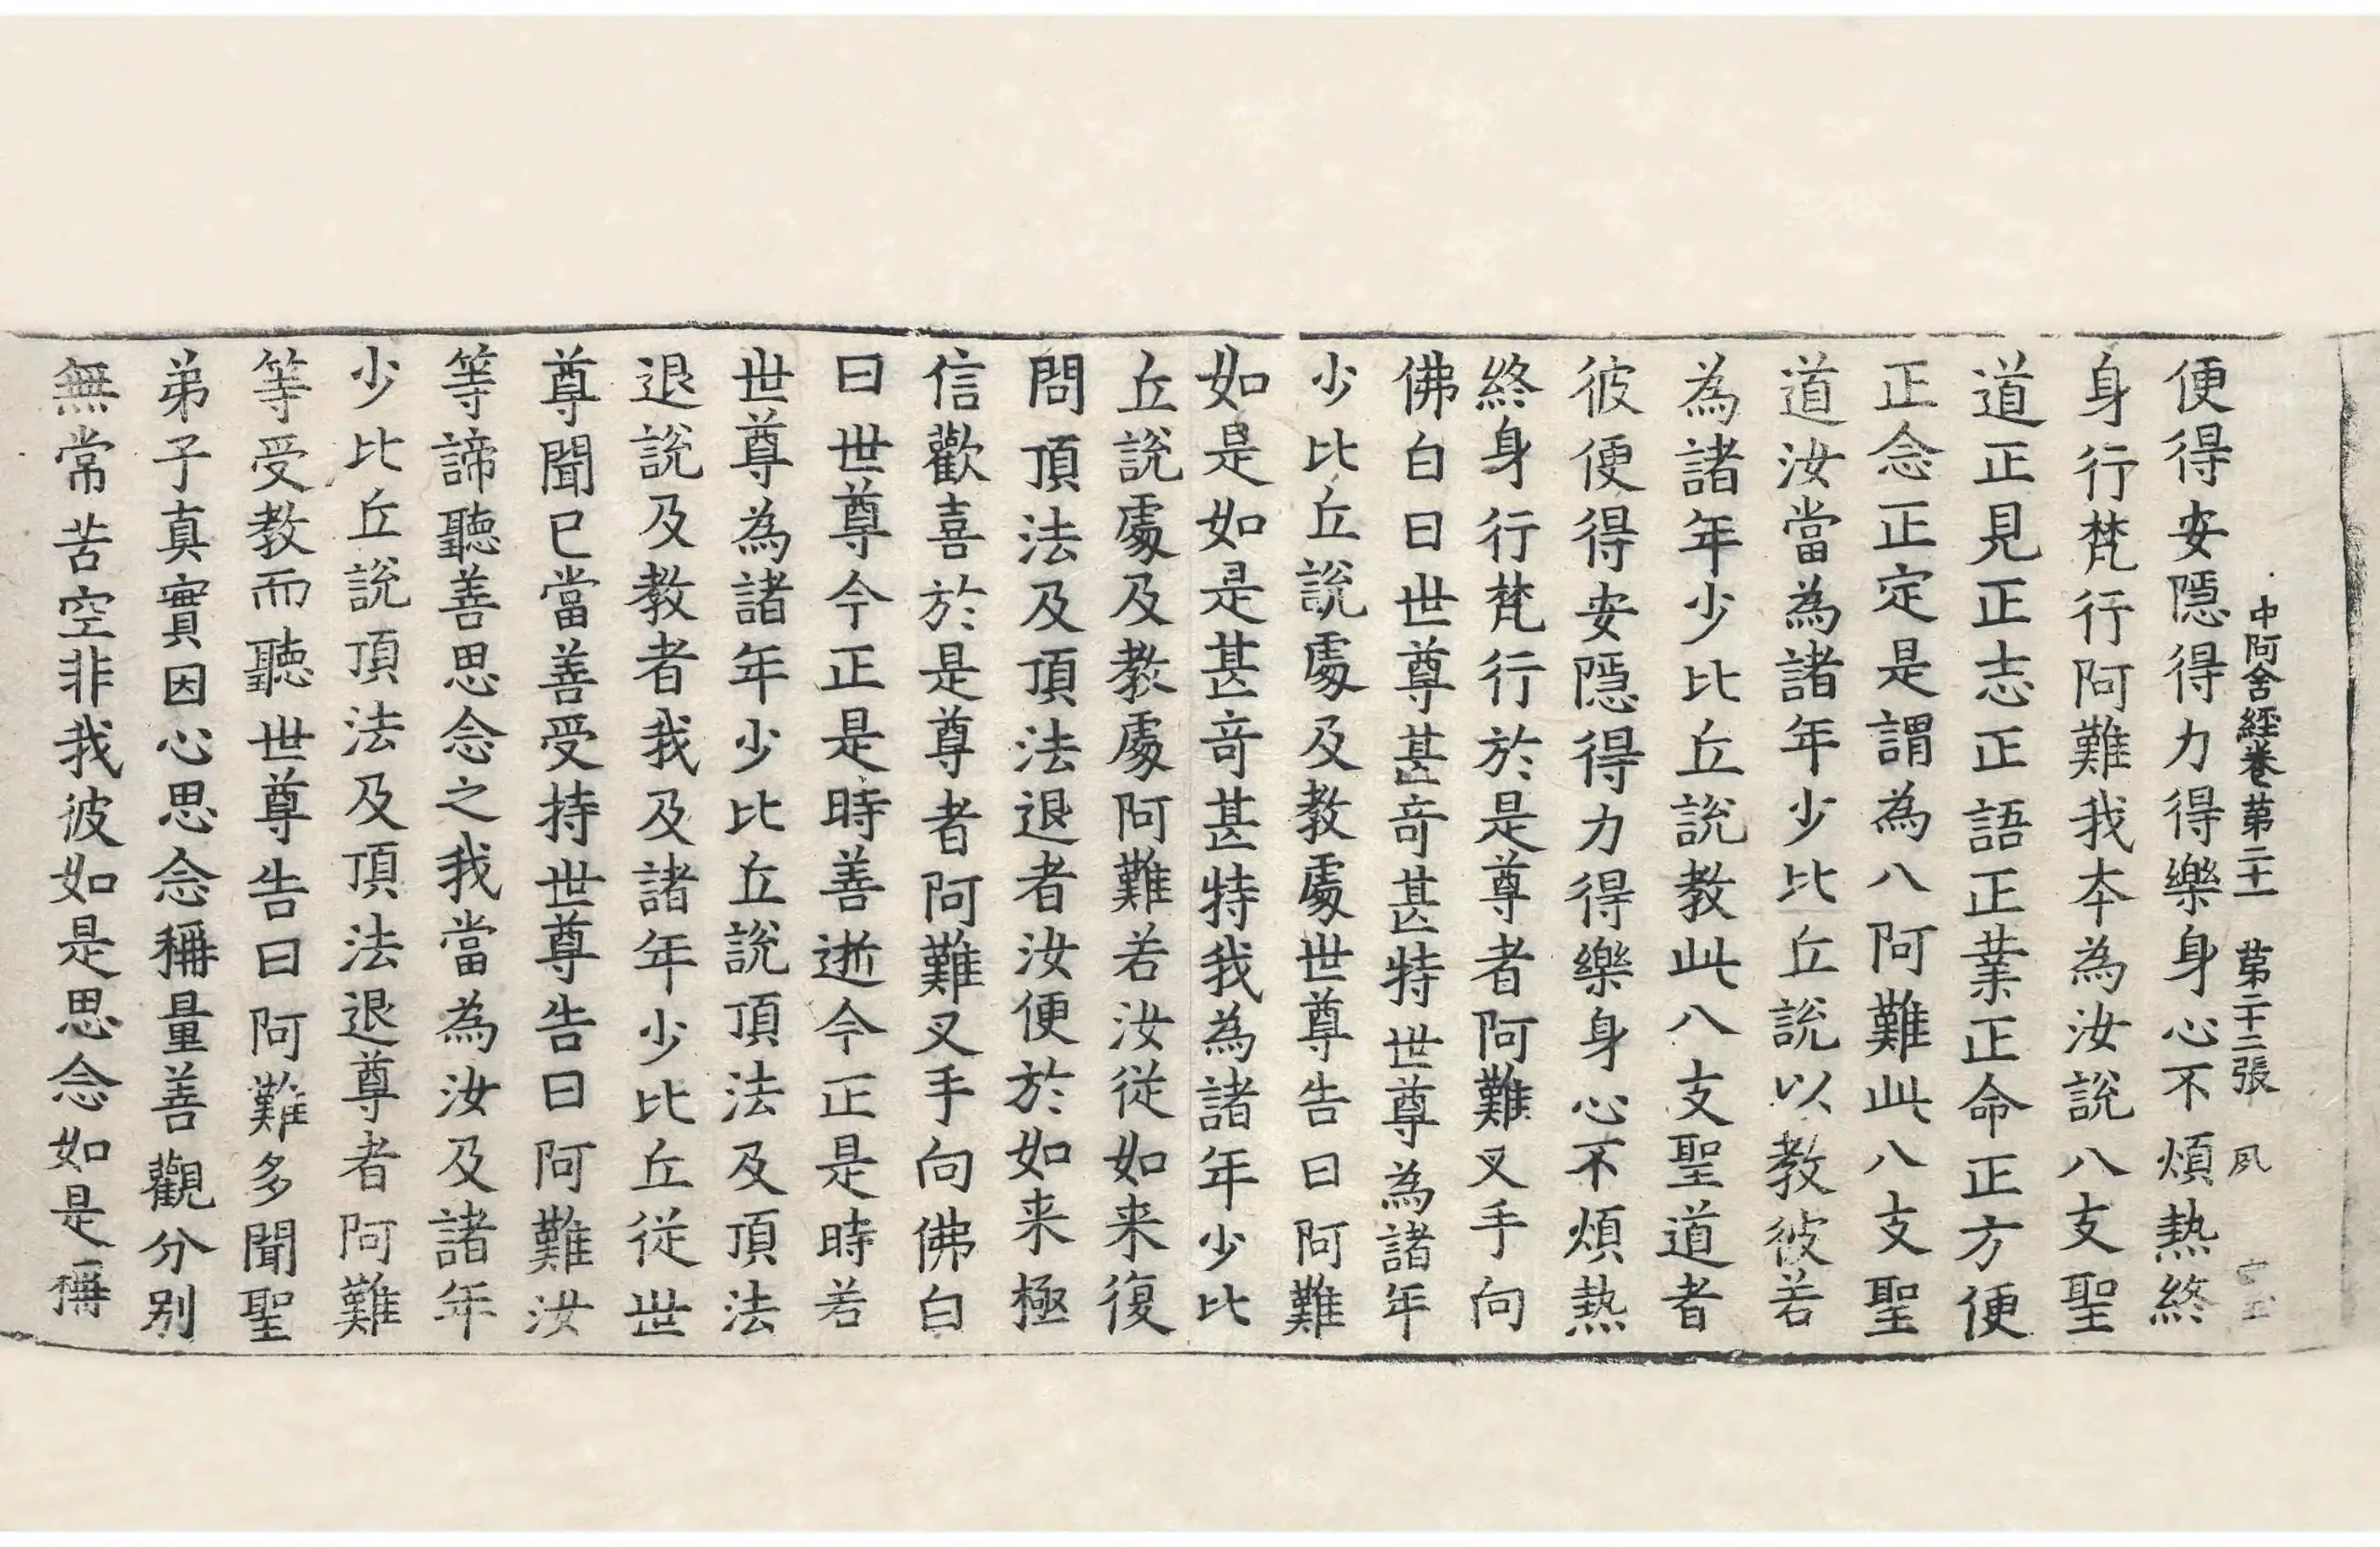 中阿含經卷第二十一 第二十二張 夙
便得安隱得力得樂身心不煩熱終
身行梵行阿難我本為汝說八支聖
道正見正志正語正業正命正方便
正念正定是謂為八阿難此八支聖
道汝當為諸年少比丘說以教彼若
為諸年少比丘說教此八支聖道者
彼便得安隱得力得樂身心不煩熱
終身行梵行於是尊者阿難叉手向
佛白曰世尊甚奇甚特世尊為諸年
少比丘說處及教處世尊告曰阿難
如是如是甚奇甚特我為諸年少比
丘說處及教處阿難若汝從如来復
問頂法及頂法退者汝便於如来極
信歡喜於是尊者阿難叉手向佛白
曰世尊今正是時善逝今正是時若
世尊為諸年少比丘說頂法及頂法
退說及教者我及諸年少比丘從世
尊聞已當善受持世尊告曰阿難汝
等諦聽善思念之我當為汝及諸年
少比丘說頂法及頂法退尊者阿難
等受教而聽世尊告曰阿難多聞聖
弟子真實因心思念稱量善觀分別
無常苦空非我彼如是思念如是稱